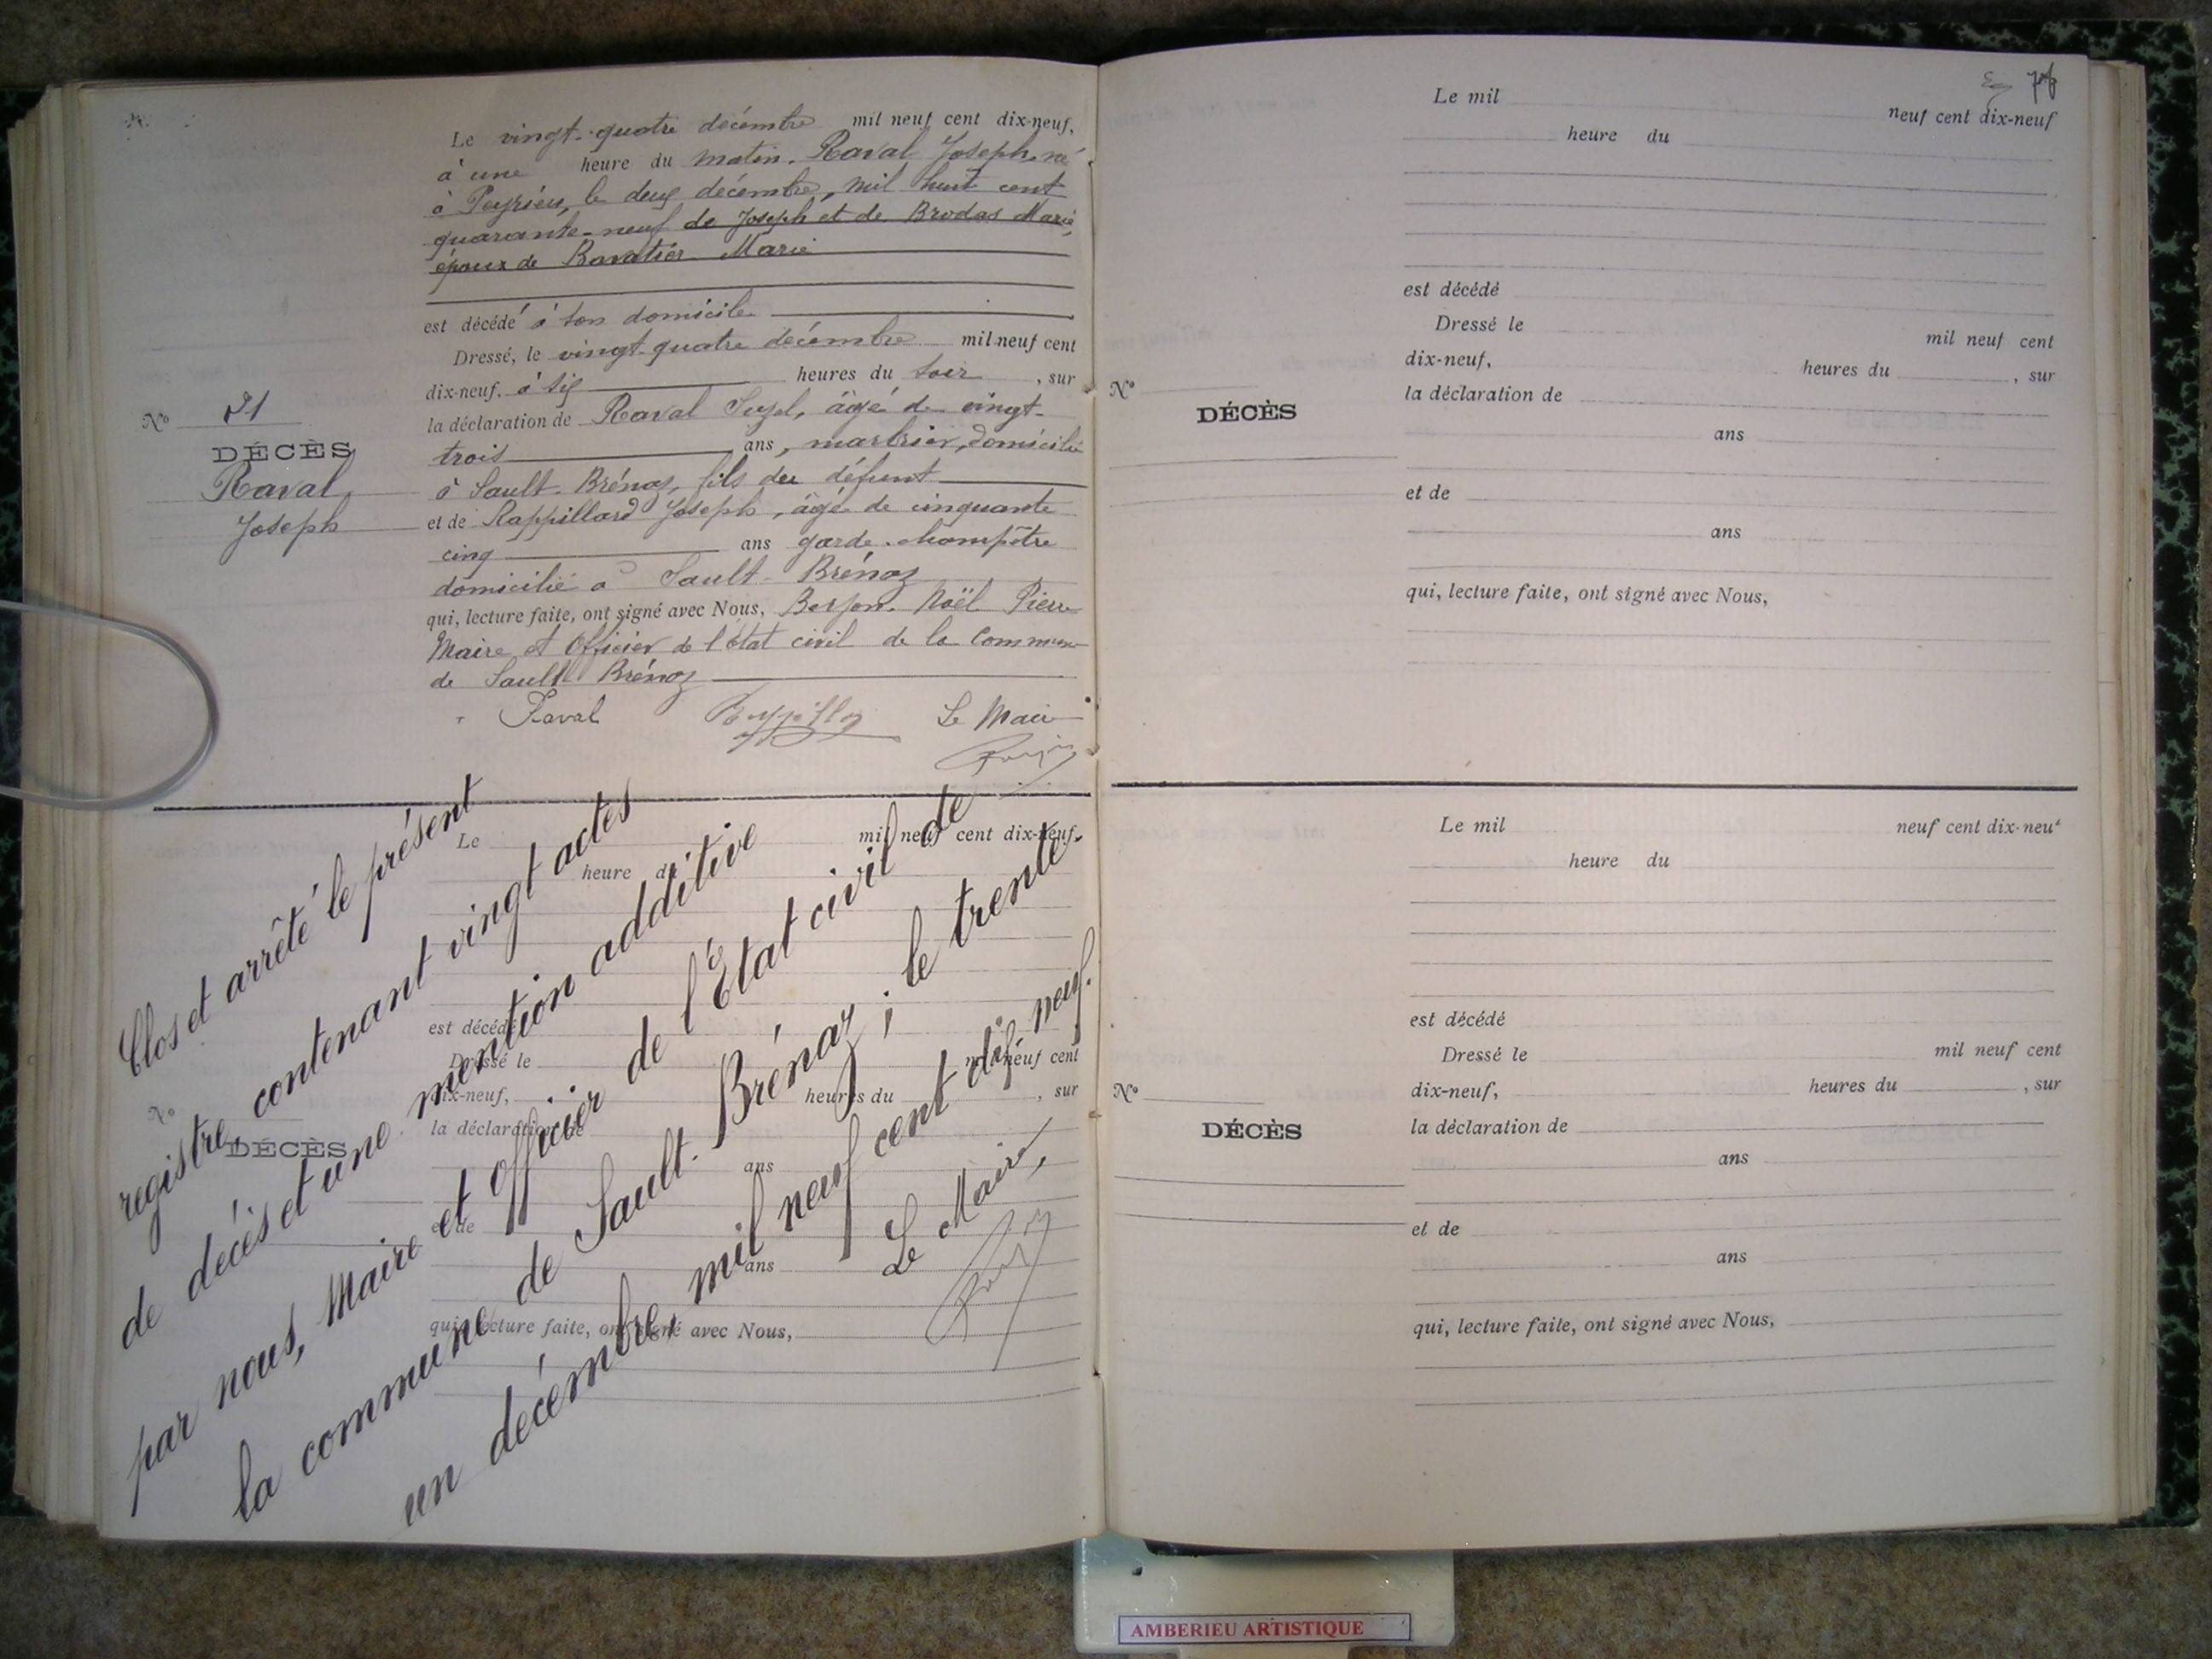 Le vingt-quatre décembre mil neuf cent dix-neuf,
à une heure du matin. Raval Joseph, né
à Peyrieu, le deux décembre, mil huit cent
quarante-neuf de Joseph et de Brodas Marie,
époux de Bavatier Marie
est décédé à son domicile
Dressé, le vingt-quatre décembre mil neuf cent
dix-neuf, à six heures du soir, sur
la déclaration de Raval âgé de vingt-
trois ans, marbrier, domicilié
à Sault-Brénaz, fils du défunt
et de Rappillard Joseph, âgé de cinquante
cinq ans garde-champêtre
domicilié à Sault-Brénaz
qui, lecture faite, ont signé avec Nous, Noël Pierre
Maire et Officier de l'état civil de la Commune
de Sault Brénaz
Raval Le Maire
No 21
DÉCÈS
Raval
Joseph
Clos et arrêté le présent
registre, contenant vingt actes
de décès et une mention additive
par nous, Maire et officier de l'État civil de
la commune de Sault-Brénaz ; le trente
un décembre, mil neuf cent dix neuf.
Le Maire,
Le mil neuf cent dix-neuf,
heure du
est décédé
Dressé le mil neuf cent
dix-neuf, heures du , sur
la déclaration de
ans
et de
ans
qui, lecture faite, ont signé avec Nous,
No
DÉCÈS
Le mil neuf cent dix-neuf
heure du
est décédé
Dressé le mil neuf cent
dix-neuf, heures du , sur
la déclaration de
ans
et de
ans
qui, lecture faite, ont signé avec Nous,
No
DÉCÈS
Le mil neuf cent dix-neuf
heure du
est décédé
Dressé le mil neuf cent
dix-neuf, heures du , sur
la déclaration de
ans
et de
ans
qui, lecture faite, ont signé avec Nous,
No
DÉCÈS
AMBERIEU ARTISTIQUE